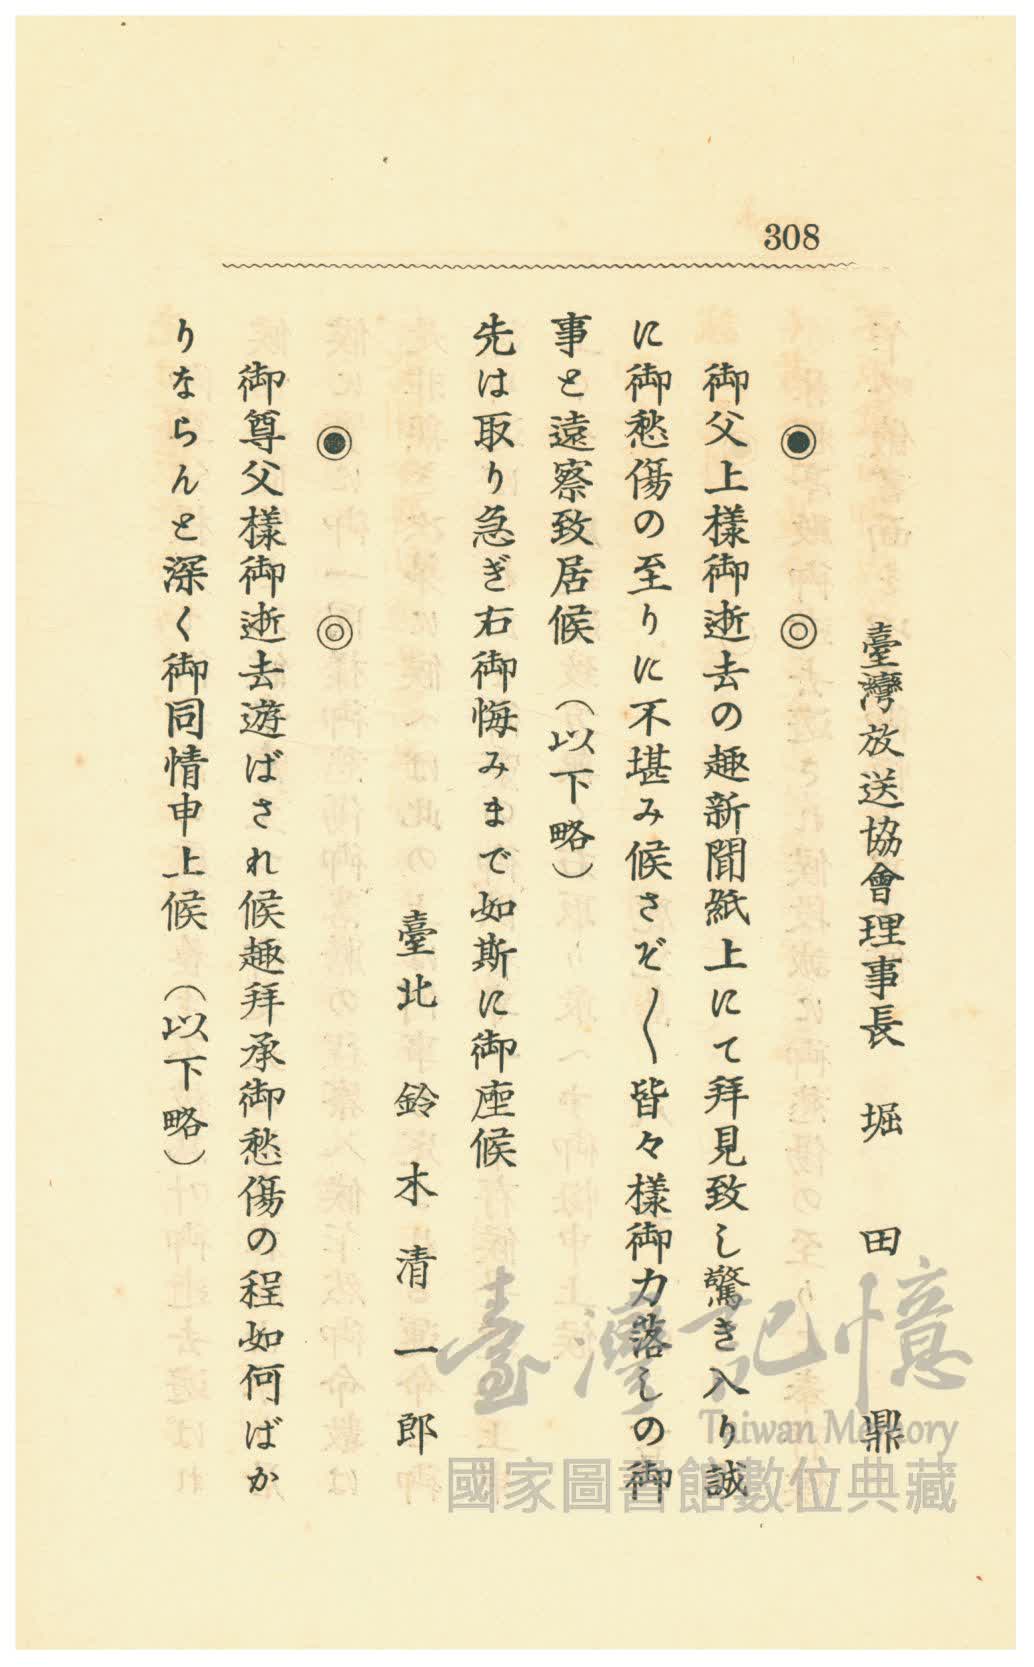 308
臺灣放送協會理事長 堀田鼎
◉ ◎
御父上樣御逝去の趣新聞紙上にて拜見致し驚き入り誠
に御愁傷の至りに不堪み候さぞ〱皆々樣御力落しの御
事と遠察致居候 (以下略)
先は取り急ぎ右御悔みまで如斯に御座候
臺北 鈴木清一郎
◉ ◎
御尊父樣御逝去遊ばされ候趣拜承御愁傷の程如何ばか
りならんと深く御同情申上候 (以下略)
臺灣記憶
Taiwan Memory
國家圖書館數位典藏